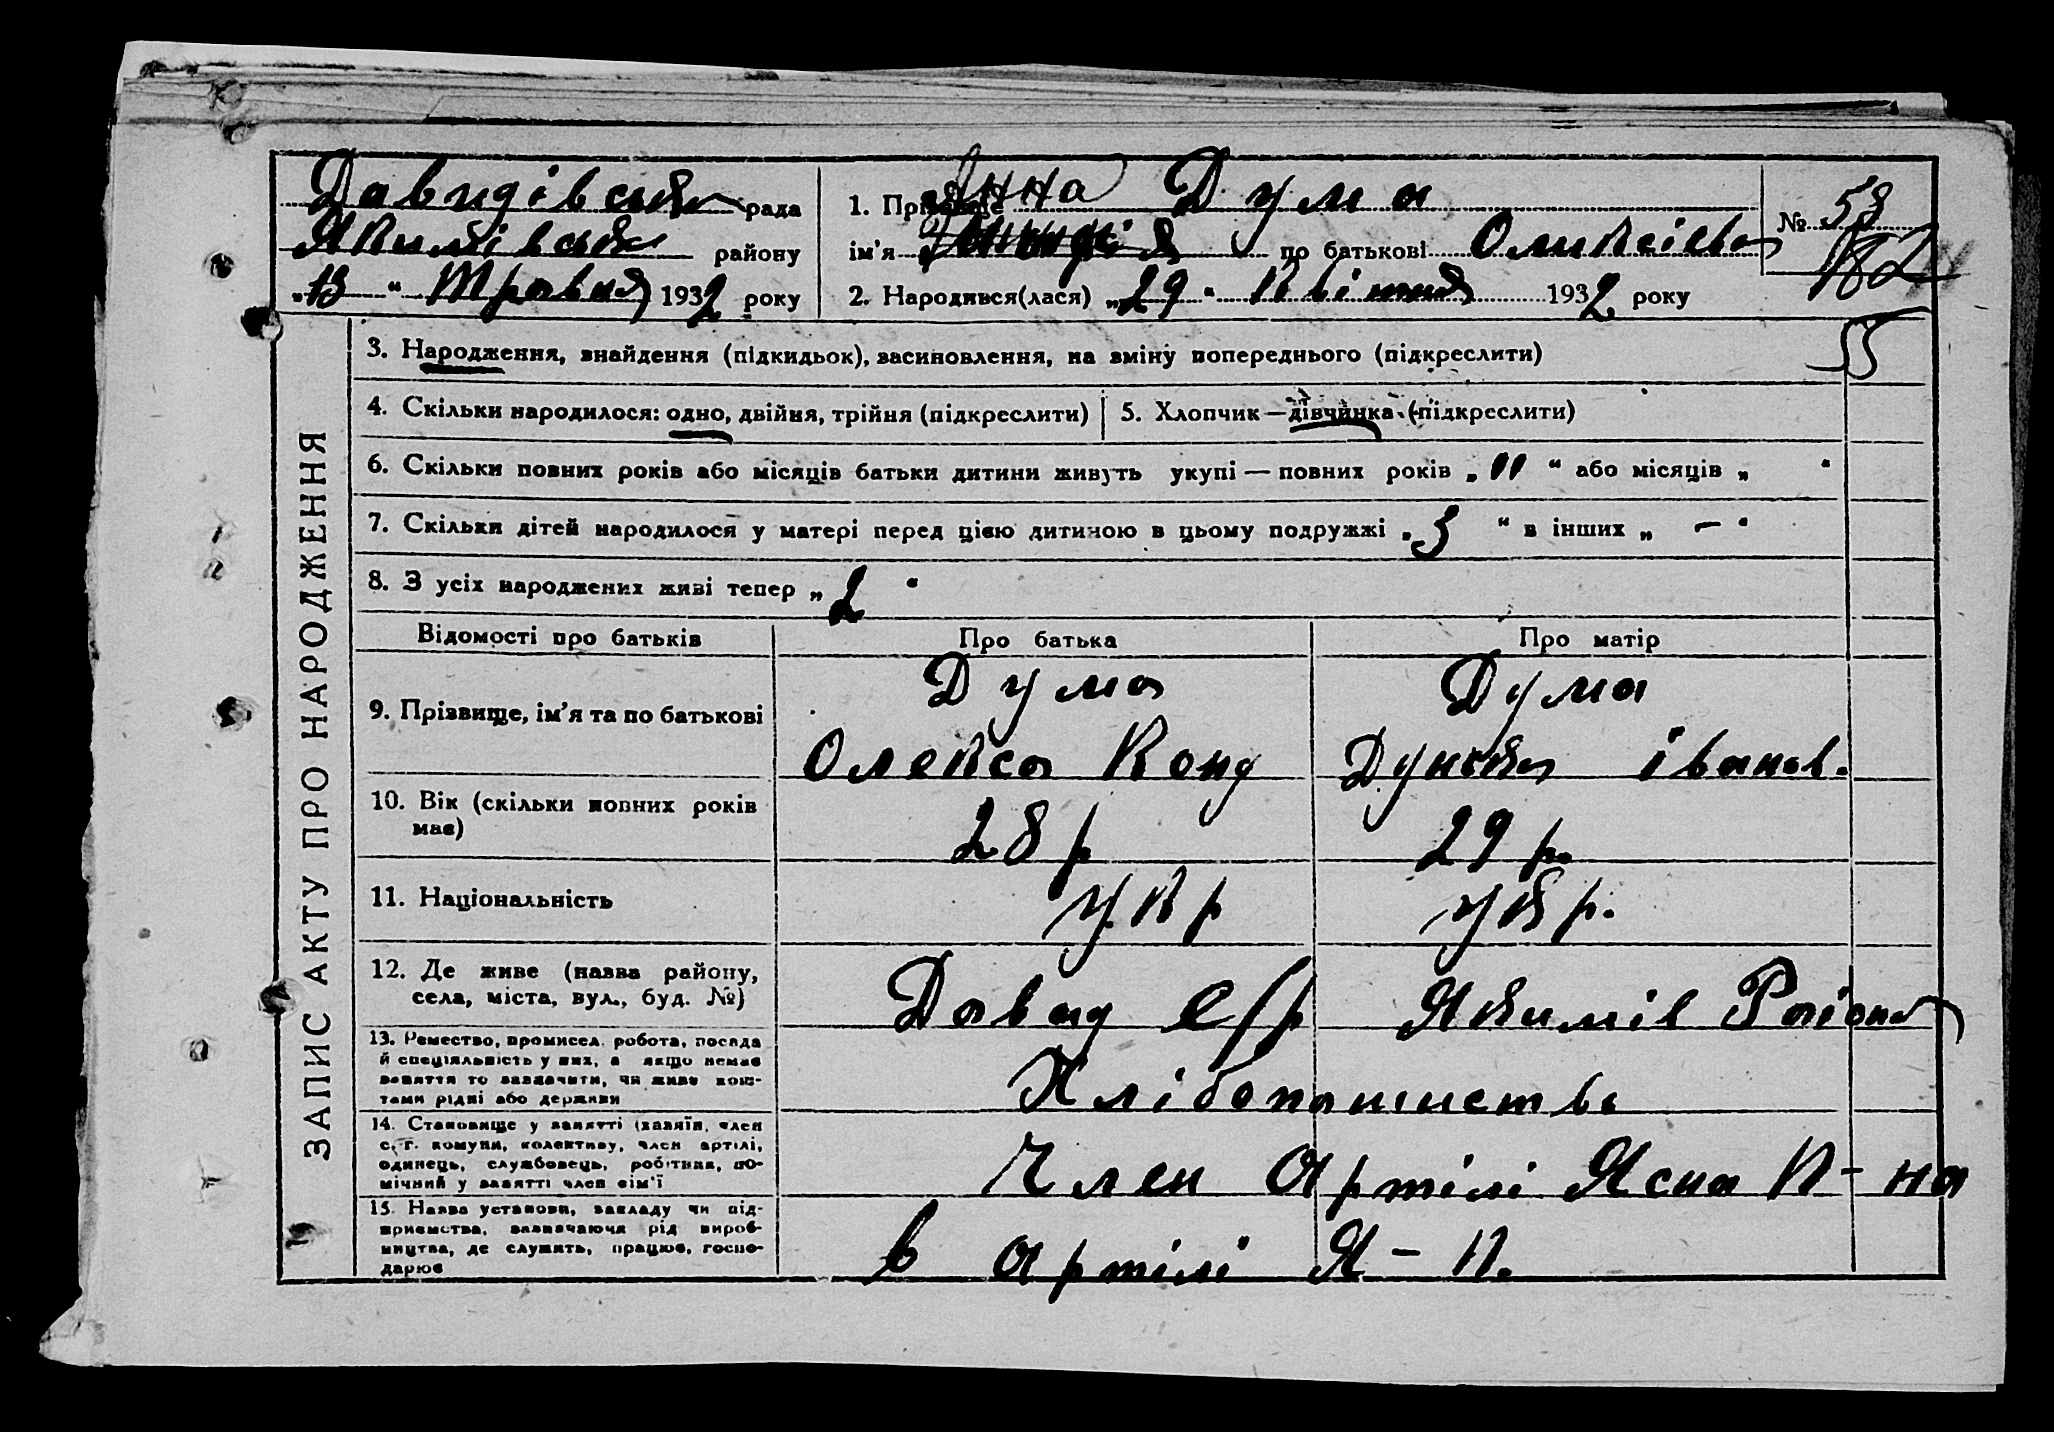 Давидівська рада
Якимівськ району
„13“ Травня 1932 року
Анна
1. Прізвище Дума
ім'я по батькові Оликсієвна
2. Народився(лася) „29“ Квітня 1932 року
№ 53
55
ЗАПИС АКТУ ПРО НАРОДЖЕННЯ
3. Народження, знайдення (підкидьок), засиновлення, на зміну попереднього (підкреслити)
4. Скільки народилося: одно, двійня, трійня (підкреслити) 5. Хлопчик — дівчинка (підкреслити)
6. Скільки повних років або місяців батьки дитини живуть укупі — повних років „11“ або місяців „ “
7. Скільки дітей народилося у матері перед цією дитиною в цьому подружжі „3“ в інших „—“
8. З усіх народжених живі тепер „2“
Відомості про батьків Про батька Про матір
9. Прізвище, ім'я та по батькові
Дума Дума
Олекса Конд Дунька іванов.
10. Вік (скільки повних років має)
28 р 29 р.
11. Національність укр укр.
12. Де живе (назва району, села, міста, вул., буд. №)
Давид с/р Якимів Району
13. Ремество, промисел, робота, посада й спеціяльність у них, а якщо немає заняття то зазначити, чи живе коштами рідні або держави
Хлібопашиство
14. Становище у занятті (хазяїн, член с.-г. комуни, колективу, член артілі, одинець, службовець, робітник, помічний у занятті член сім'ї
Член Артілі Ясна П-на
15. Назва установи, закладу чи підприємства, зазначаючи рід виробництва, де служить, працює, господарює
в артілі Я-П.